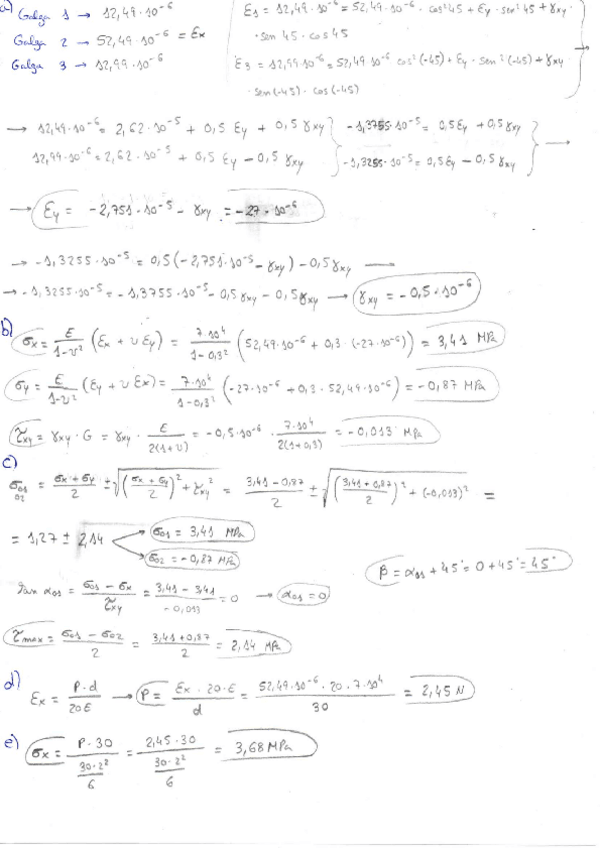 a) Galga 1 → 12,49·10⁻⁶
Galga 2 → 52,49·10⁻⁶ = Ex
Galga 3 → 12,99·10⁻⁶
E1 = 12,49·10⁻⁶ = 52,49·10⁻⁶ · cos²45 + Ey · sen²45 + γxy ·
· sen 45 · cos 45
E3 = 12,99·10⁻⁶ = 52,49·10⁻⁶ cos²(-45) + Ey · sen²(-45) + γxy
· sen(-45) · cos(-45)
→ 12,49·10⁻⁶ = 2,62·10⁻⁵ + 0,5 Ey + 0,5 γxy } -1,3755·10⁻⁵ = 0,5Ey + 0,5γxy
12,99·10⁻⁶ = 2,62·10⁻⁵ + 0,5 Ey - 0,5 γxy } -1,3255·10⁻⁵ = 0,5Ey - 0,5γxy } →
→ Ey = -2,751·10⁻⁵ - γxy = -27·10⁻⁶
→ -1,3255·10⁻⁵ = 0,5(-2,751·10⁻⁵ - γxy) - 0,5γxy →
→ -1,3255·10⁻⁵ = -1,3755·10⁻⁵ - 0,5γxy - 0,5γxy → γxy = -0,5·10⁻⁶
b) σx = E/(1-υ²) (Ex + υEy) = 7·10⁴/(1-0,3²) (52,49·10⁻⁶ + 0,3·(-27·10⁻⁶)) = 3,41 MPa
σy = E/(1-υ²) (Ey + υEx) = 7·10⁴/(1-0,3²) (-27·10⁻⁶ + 0,3·52,49·10⁻⁶) = -0,87 MPa
τxy = γxy · G = γxy · E/(2(1+υ)) = -0,5·10⁻⁶ · 7·10⁴/(2(1+0,3)) = -0,013 MPa
c) σ01 σ02 = (σx+σy)/2 ± √(((σx+σy)/2)² + τxy²) = (3,41-0,87)/2 ± √(((3,41+0,87)/2)² + (-0,013)²) =
= 1,27 ± 2,14
σ01 = 3,41 MPa
σ02 = -0,87 MPa
β = α01 + 45° = 0 + 45° = 45°
tan α01 = (σ01 - σx)/τxy = (3,41 - 3,41)/-0,013 = 0 → α01 = 0
τmax = (σ01 - σ02)/2 = (3,41+0,87)/2 = 2,14 MPa
d) Ex = P·d/20E → P = Ex·20·E/d = 52,49·10⁻⁶·20·7·10⁴/30 = 2,45 N
e) σx = P·30/(30·2²/6) = 2,45·30/(30·2²/6) = 3,68 MPa